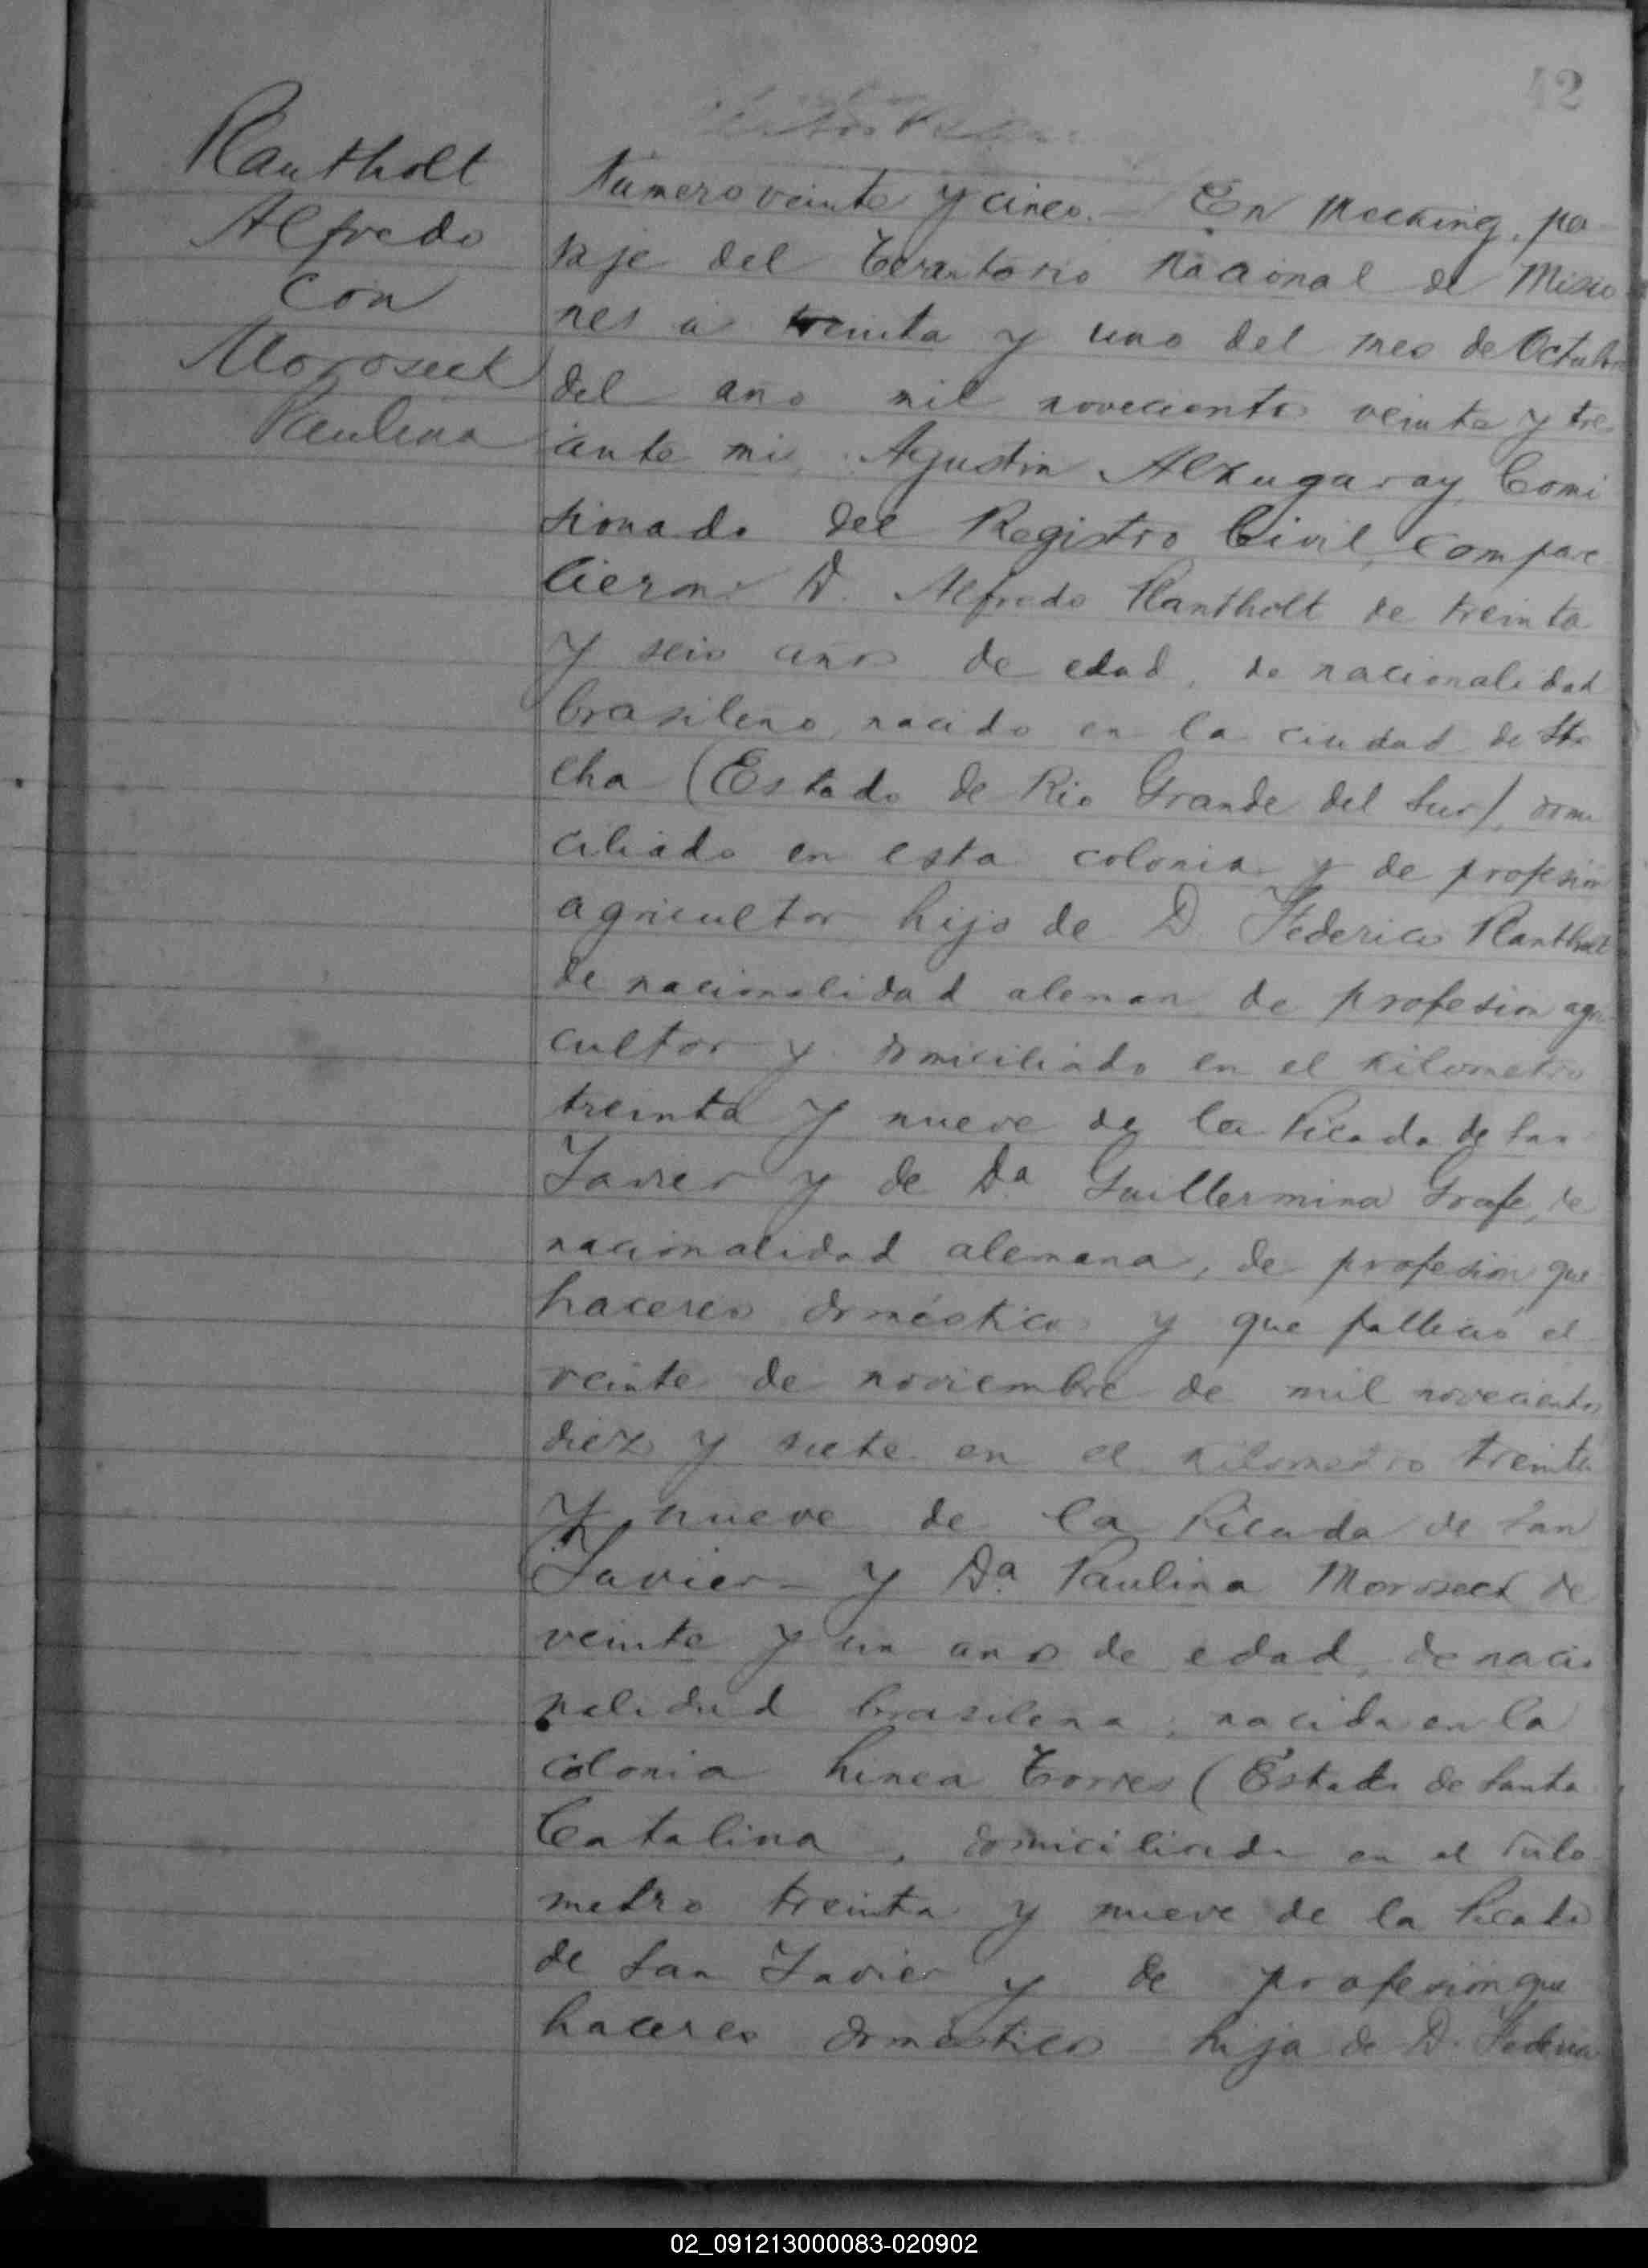 42
Rantholt
Alfredo
con
Moroseck
Paulina
Número veinte y cinco.— En Mecking, pa
raje del Territorio Nacional de Misio
nes a treinta y uno del mes de Octubre
del año mil novecientos veinte y tres
ante mi Agustin Alzugaray Comi
sionado del Registro Civil, compare
cieron D. Alfredo Rantholt de treinta
y seis años de edad, de nacionalidad
brasileno, nacido en la ciudad de
(Estado de Rio Grande del Sur), domi
ciliado en esta colonia y de profesión
agricultor hijo de D Federico Rantholt
de nacionalidad aleman de profesion agri
cultor y domiciliado en el kilometro
treinta y nueve de la Picada de San
Javier y de Da Guillermina Grafe, de
nacionalidad alemana, de profesion que
haceres domésticos y que falleció el
veinte de noviembre de mil novecientos
diez y siete en el kilometro treinta
y nueve de la Picada de San
Javier— y Da. Paulina Moroseck de
veinte y un anos de edad, de nacio
nalidad brasilena, nacida en la
colonia Linea Torres (Estado de Santa
Catalina, domiciliada en el kilo
metro treinta y nueve de la Picada
de San Javier y de profesion que
haceres domésticos hija de D. Federico
02_091213000083-020902